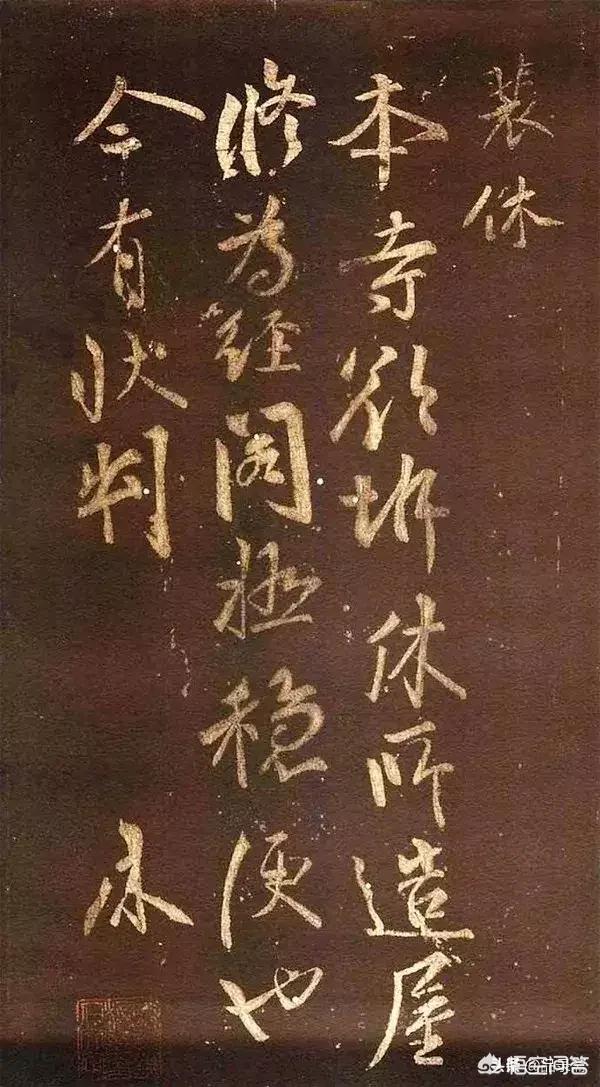 裴休
本寺欲拆休所造屋
修為經閣極穩便也
今有狀判 休
悟空问答